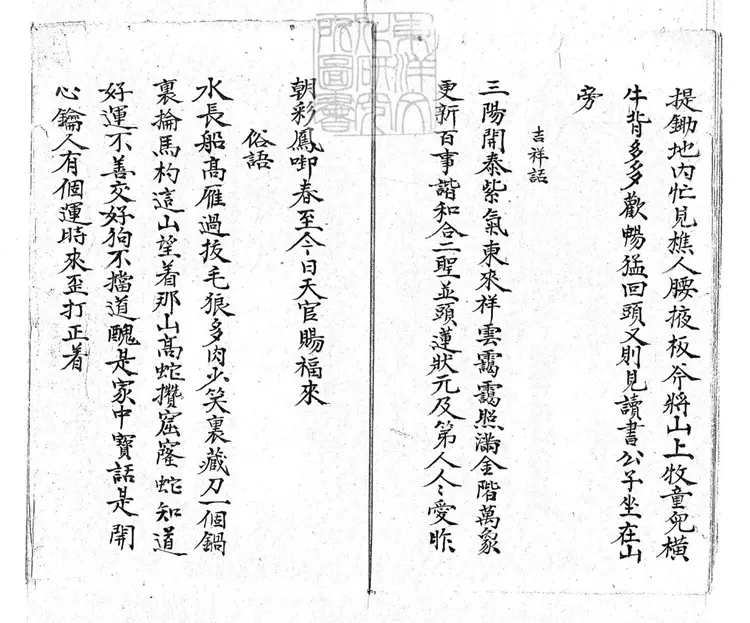 提鋤地内忙見樵人腰掖板斧將山上牧童兒橫
牛背多多歡暢猛回頭又則見讀書公子坐在山
旁
吉祥話
三陽開泰紫氣東來祥雲靄靄照滿金階萬象
更新百事諧和合二聖並頭蓮狀元及第人人愛昨
朝彩鳳啣春至今日天官賜福來
俗語
水長船高雁過拔毛狼多肉少笑裏藏刀一個鍋
裏掄馬杓這山望着那山高蛇攢窟窿蛇知道
好運不善交好狗不擋道醜是家中寶話是開
心鑰人有個運時來歪打正着
東洋文
化研究
所圖書